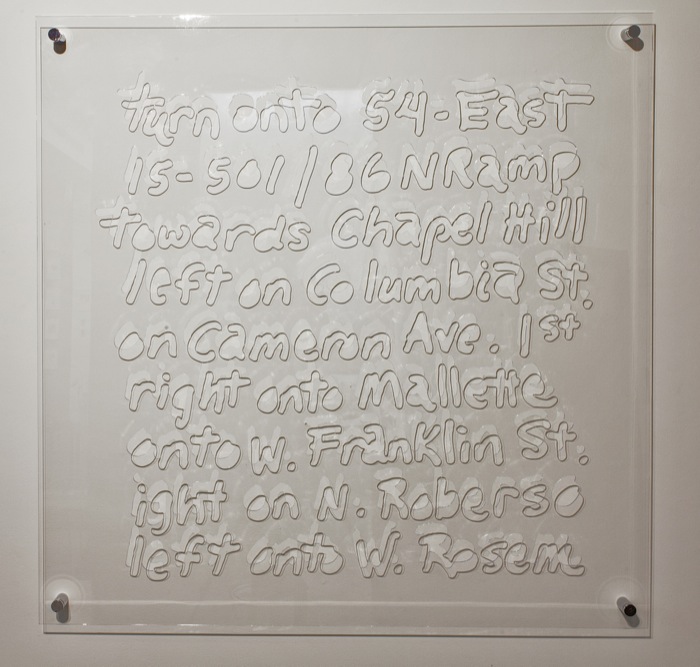 turn onto 54-East
15-501/86 N Ramp
towards Chapel Hill
left on Columbia St.
on Cameron Ave. 1st
right onto Mallette
onto W. Franklin St.
ight on N. Roberso
left onto W. Rosem